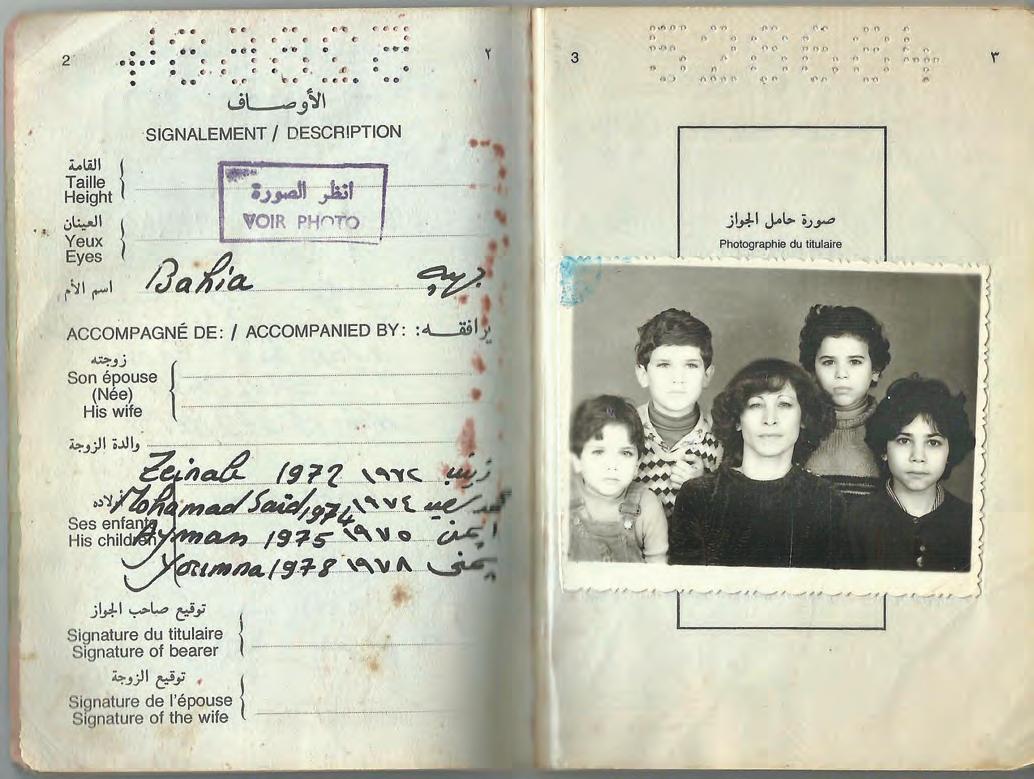 2
٢
الأوصاف
SIGNALEMENT / DESCRIPTION
القامة
Taille
Height
انظر الصورة
VOIR PHOTO
العينان
Yeux
Eyes
اسم الأم Bahia بهيه
ACCOMPAGNÉ DE: / ACCOMPANIED BY: يرافقه:
زوجته
Son épouse
(Née)
His wife
والدة الزوجة
Zeinab 1972 ١٩٧٢ زينب
Mohamad Saïd 1974 ١٩٧٤
اولاده
Ses enfants
His children
Ayman 1975 ١٩٧٥ ايمن
Youmna 1978 ١٩٧٨ يمنى
توقيع صاحب الجواز
Signature du titulaire
Signature of bearer
توقيع الزوجة
Signature de l'épouse
Signature of the wife
3
٣
صورة حامل الجواز
Photographie du titulaire